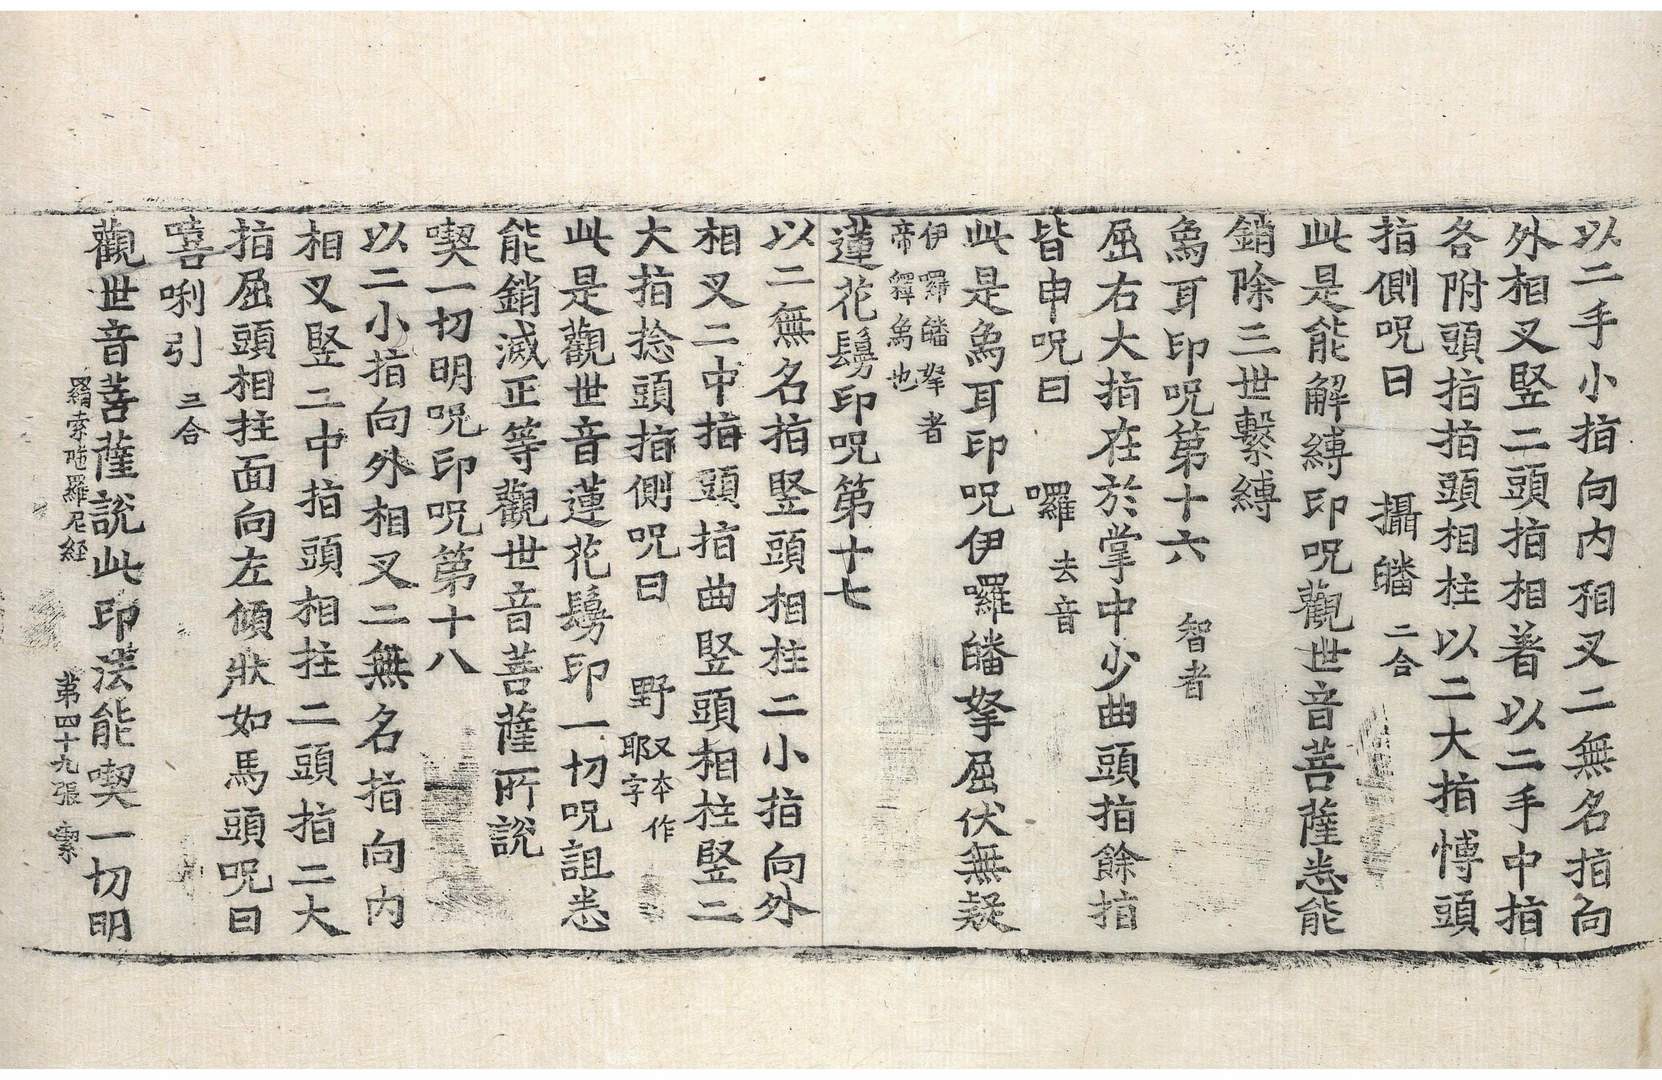 以二手小指向內相叉二無名指向
外相叉竪二頭指相著以二手中指
各附頭指指頭相柱以二大指愽頭
指側呪曰　攝皤二合
此是能解縛印呪觀世音菩薩悉能
銷除三世繫縛
烏耳印呪第十六　智者
屈右大指在於掌中少曲頭指餘指
皆申呪曰　囉去音
此是烏耳印呪伊囉皤拏屈伏無疑
伊囉皤拏者
帝釋烏也
蓮花鬘印呪第十七
以二無名指竪頭相柱二小指向外
相叉二中指頭指曲竪頭相柱竪二
大指捻頭指側呪曰　野又本作耶字
此是觀世音蓮花鬘印一切呪詛悉
能銷滅正等觀世音菩薩所說
喫一切明呪印呪第十八
以二小指向外相叉二無名指向內
相叉竪二中指頭相拄二頭指二大
指屈頭相拄面向左傾狀如馬頭呪曰
嘻唎引三合
羂索陁羅尼経　第四十九張　
觀世音菩薩說此印法能喫一切明